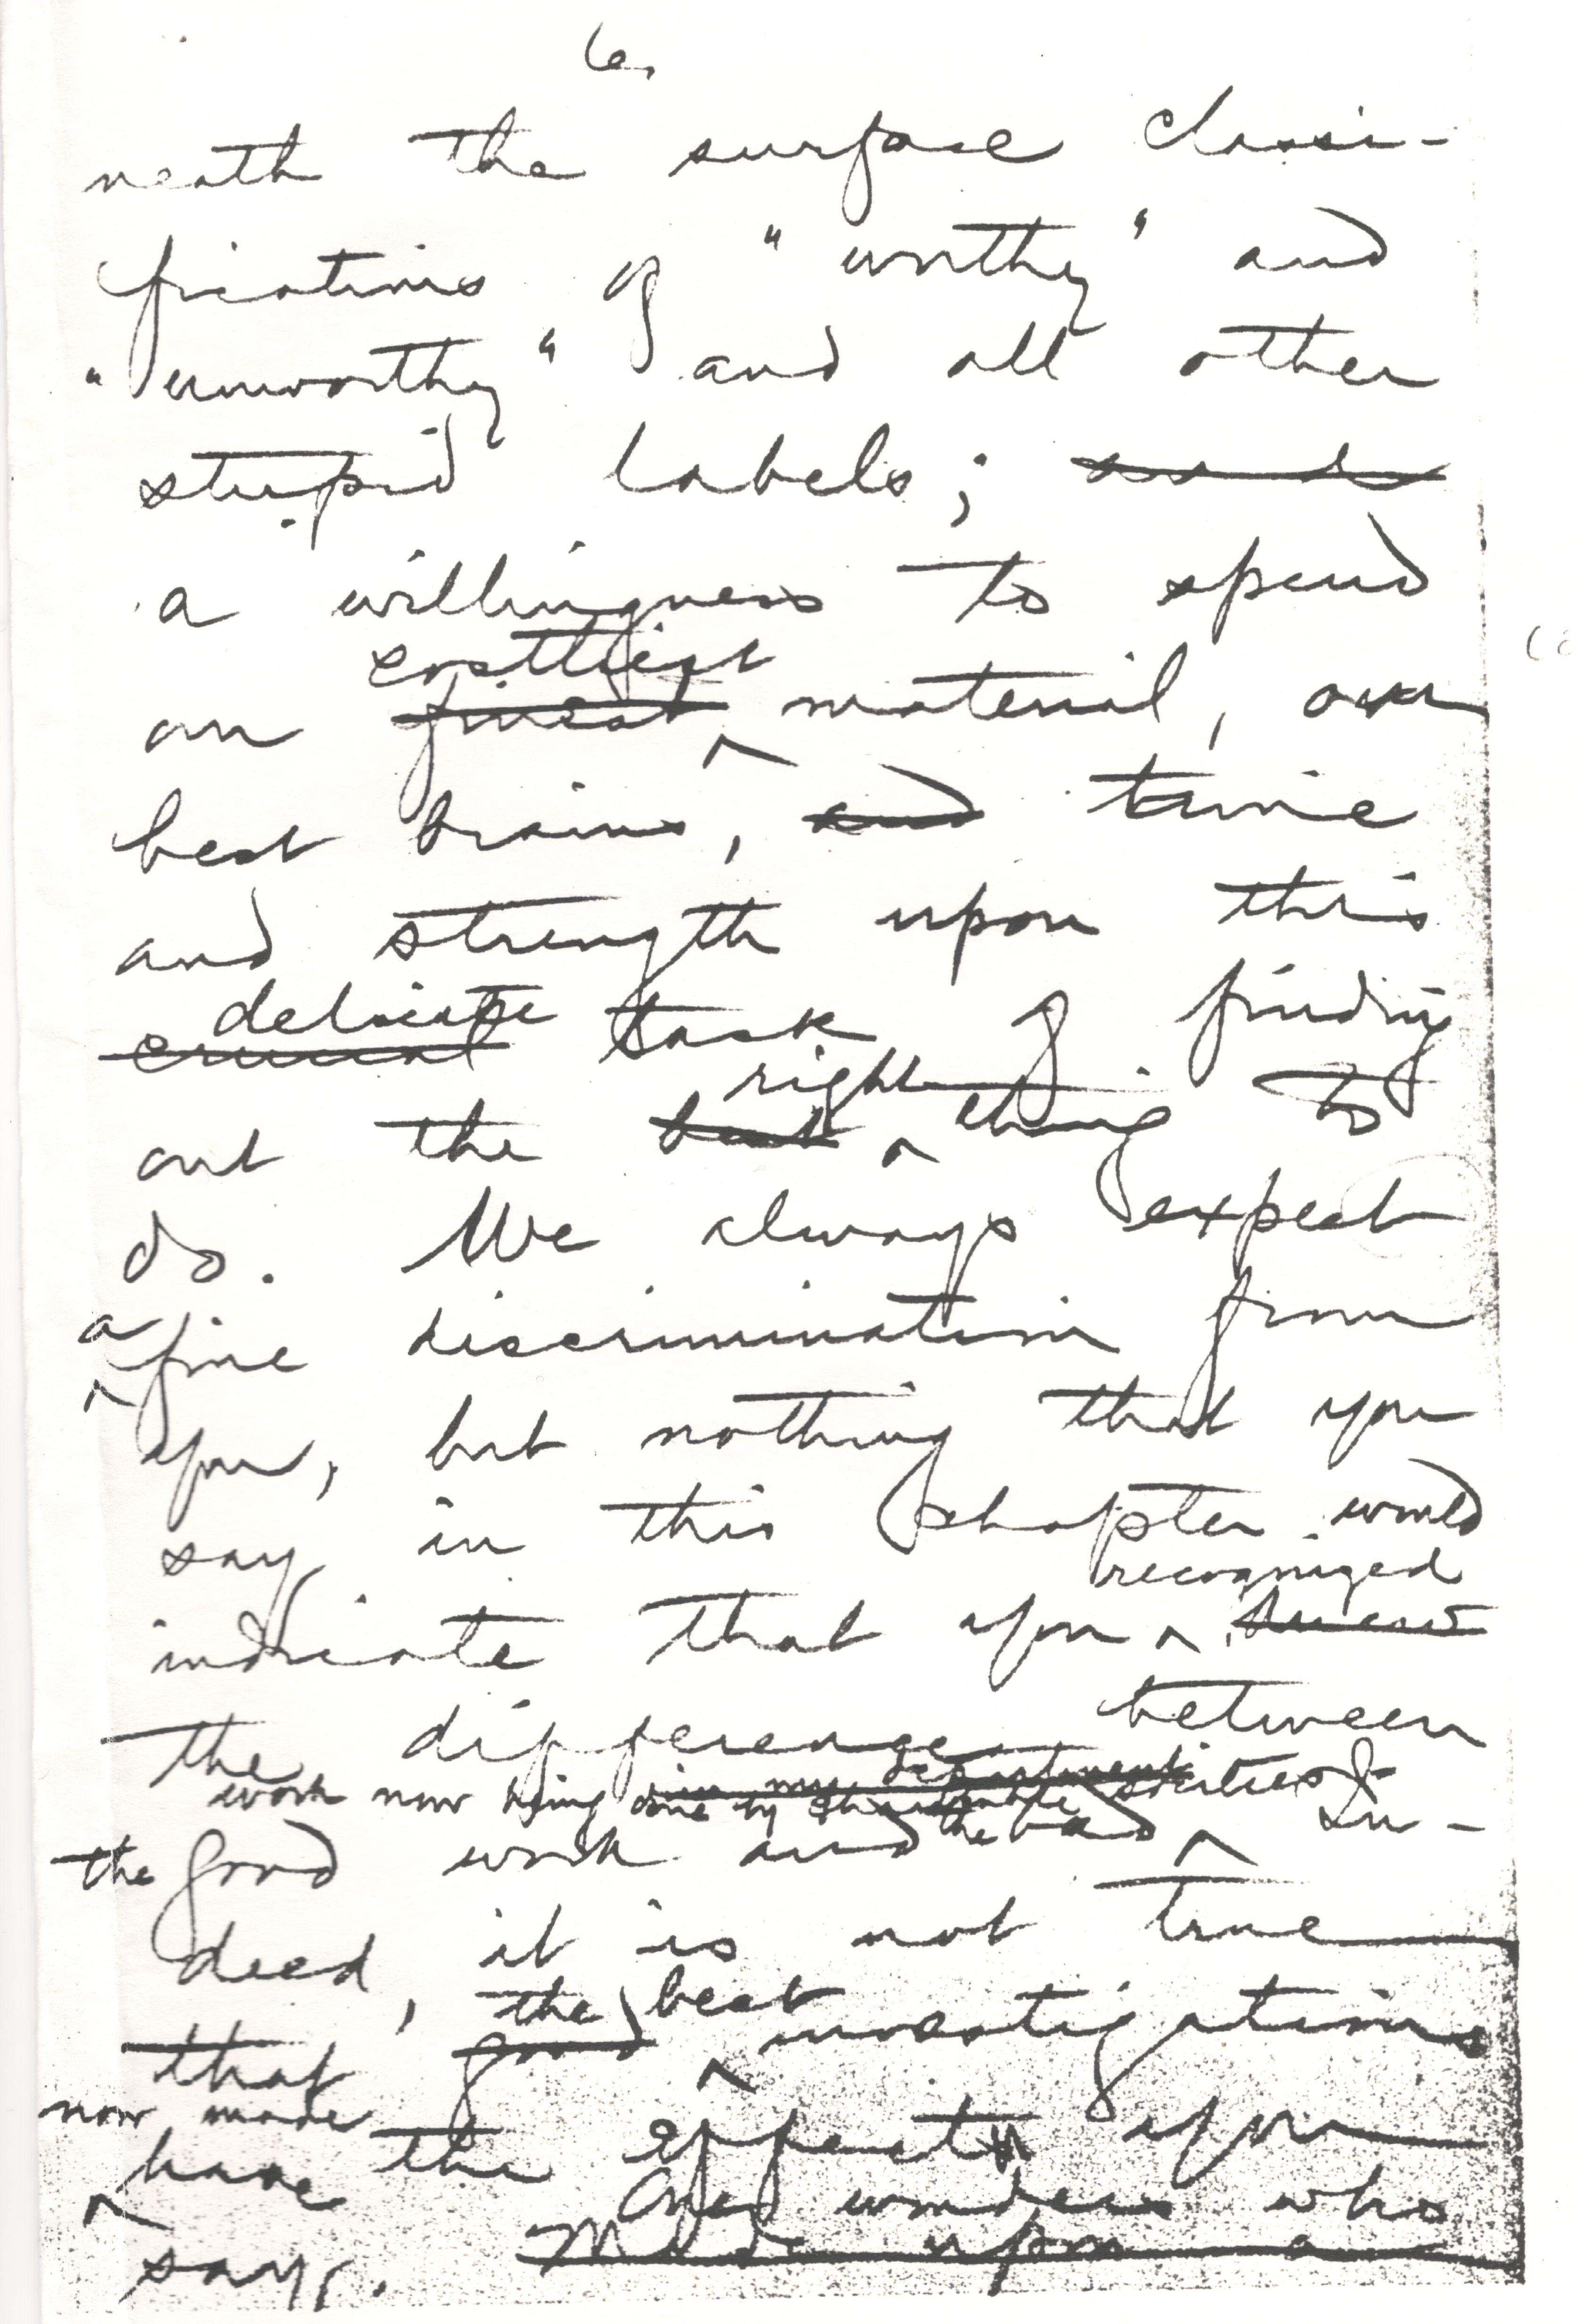 6.
neath the surface classi-
fications of "worthy" and
"unworthy" and all other
stupid labels; and
a willingness to spend
costliest
on finest material, our
best brains, and time
and strength upon this
delicate
crucial task of finding
right
out the best thing to
do. We always expect
a
fine discrimination from
you, but nothing that you
say in this chapter would
recognized
indicate that you knew
the difference between
in my department
work now being done by charitable societies
the good work and the bad In-
deed, it is not true
the best
that good investigations
now made
have the effect you
One wonders who
say. Made upon a